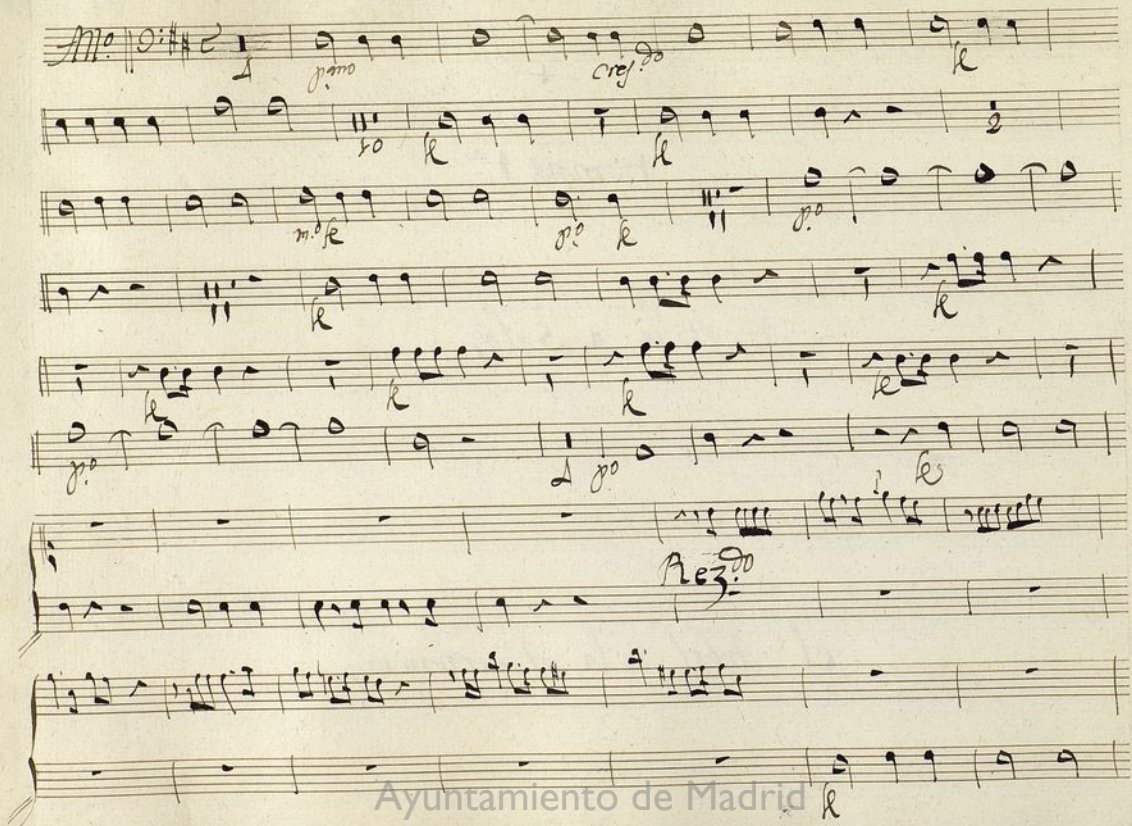 All.º
1 cres.do fe
10 fe fe 2
fe p.º fe 11 p.º
11 fe fe
fe fe fe fe
p.º 1 p.º fe
Rez.do
fe
Ayuntamiento de Madrid